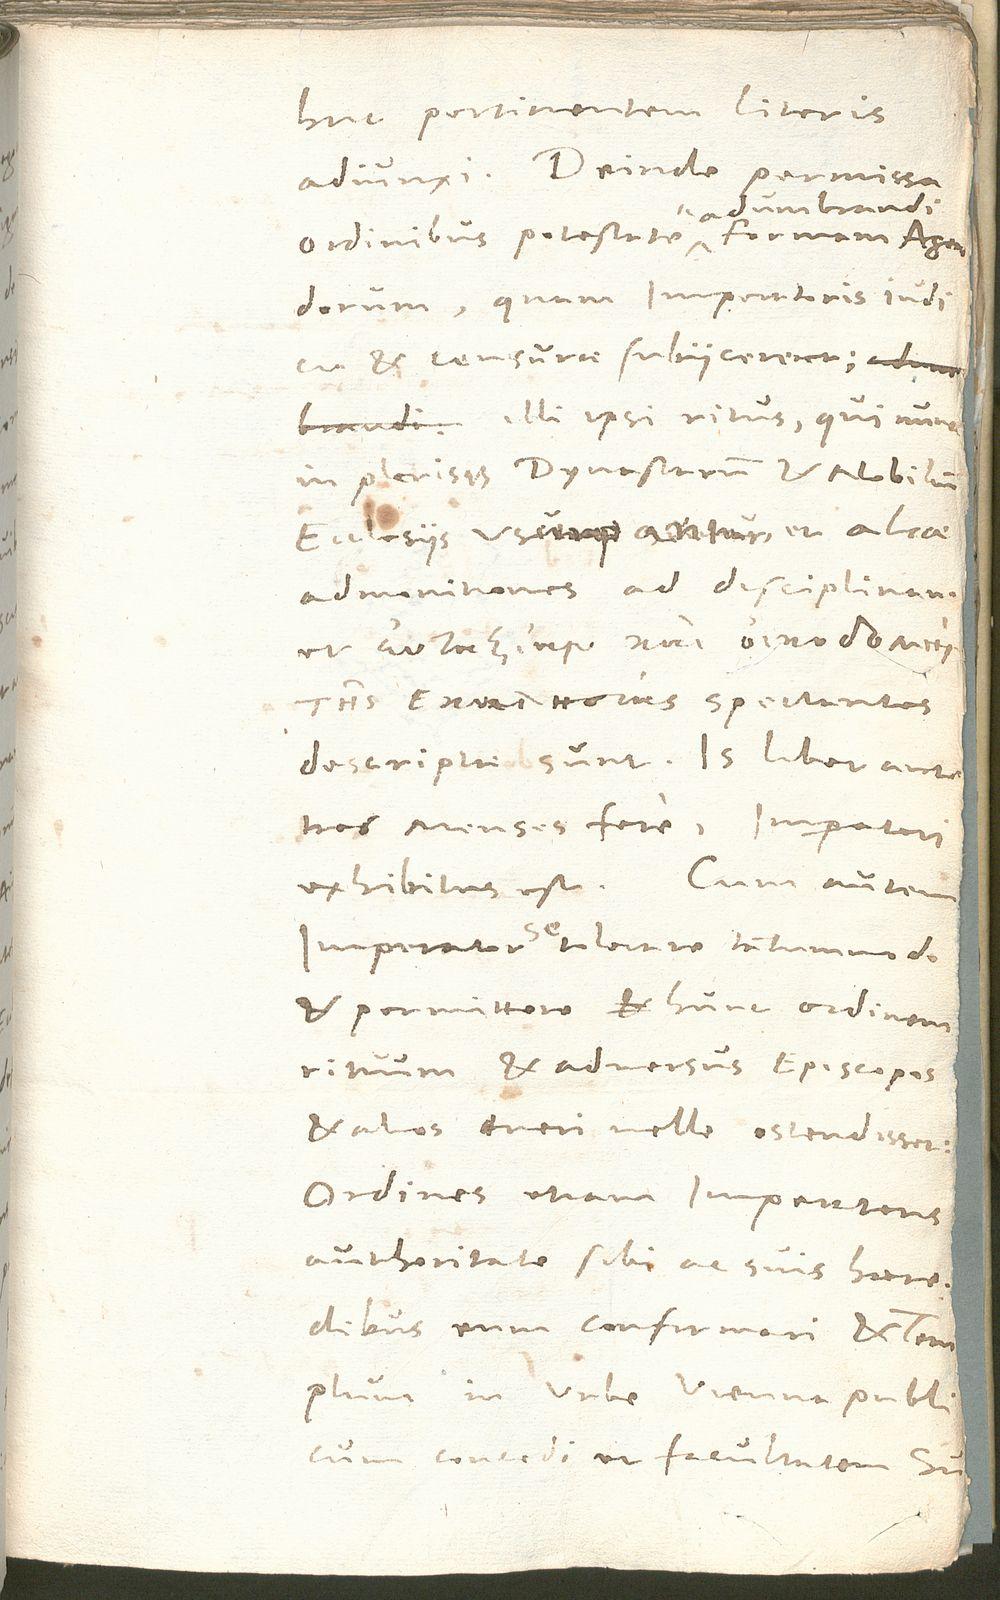 huc pertinentem literis
adiunxi. Deinde permissa
adumbrandi
ordinibus potestate formam Agen
dorum, quam Imperatoris iudi
cio & censurae subijcerent; adum
brandi. illi ipsi ritus, qui nunc
in plerisq; Dynastarum̄ & Nobiliū
Ecclesijs usurpantur, et aliae
admonitiones ad disciplinam
et ἐυταξίαν καὶ οἰκοδομὴν
τῆς Ἐκκλησίας spectantes
descriptae sunt. Is liber ante
tres menses ferè, Impatori
exhibitus est. Cum autem
Imperator se tolerare tātummodo
& permittere & hunc ordinem
rituum & adversus Episcopos
& alios tueri velle ostendisset:
Ordines etiam Imperatoris
authoritate sibi ac suis haere
dibus eum confirmari & Tem
plum in Urbe Vienna publi
cum concedi et facultatem Su